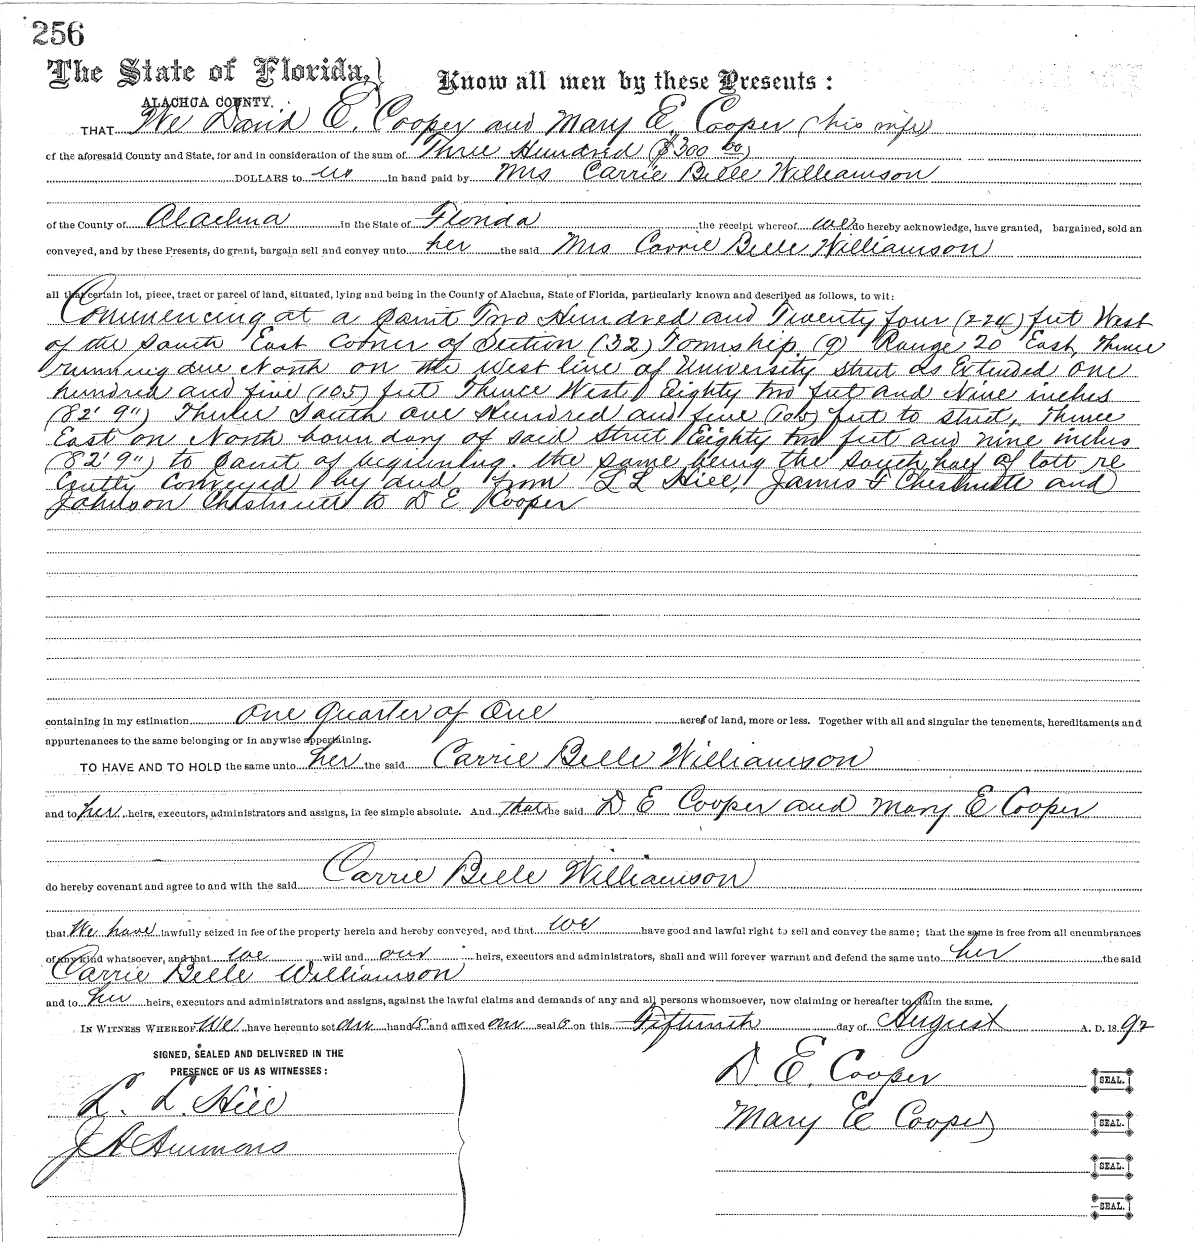 256
The State of Florida,
ALACHUA COUNTY.
Know all men by these Presents:
THAT We David E. Cooper and Mary E. Cooper (his wife)
of the aforesaid County and State, for and in consideration of the sum of Three Hundred ($300 00)
DOLLARS to us in hand paid by Mrs Carrie Belle Williamson
of the County of Alachua in the State of Florida the receipt whereof we do hereby acknowledge, have granted, bargained, sold an
conveyed, and by these Presents, do grant, bargain sell and convey unto her the said Mrs Carrie Belle Williamson
all that certain lot, piece, tract or parcel of land, situated, lying and being in the County of Alachua, State of Florida, particularly known and described as follows, to wit:
Commencing at a point Two Hundred and Twenty four (224) feet West
of the South East Corner of Section (32) Township (9) Range 20 East, Thence
running due North on the West line of University Street as Extended one
hundred and five (105) feet Thence West Eighty two feet and Nine inches
(82' 9") Thence South one Hundred and five (105) feet to street, Thence
East on North boundary of said Street Eighty two feet and nine inches
(82' 9") to point of beginning. the same being the south half of lott re
conveyed by deed from L L Hill, James F Chestnutt and
Johnson Chestnutt to D E Cooper
containing in my estimation one quarter of one acre of land, more or less. Together with all and singular the tenements, hereditaments and
appurtenances to the same belonging or in anywise appertaining.
TO HAVE AND TO HOLD the same unto her the said Carrie Belle Williamson
and to her heirs, executors, administrators and assigns, in fee simple absolute. And that he said D E Cooper and Mary E Cooper
do hereby covenant and agree to and with the said Carrie Belle Williamson
that We have lawfully seized in fee of the property herein and hereby conveyed, and that we have good and lawful right to sell and convey the same; that the same is free from all encumbrances
of any kind whatsoever, and that we will and our heirs, executors and administrators, shall and will forever warrant and defend the same unto her the said
Carrie Belle Williamson
and to her heirs, executors and administrators and assigns, against the lawful claims and demands of any and all persons whomsoever, now claiming or hereafter to claim the same.
IN WITNESS WHEREOF We have hereunto set our hands and affixed our seals on this Fifteenth day of August A. D. 18 92
SIGNED, SEALED AND DELIVERED IN THE
PRESENCE OF US AS WITNESSES:
L. L. Hill
D E. Cooper SEAL.
Mary E Cooper SEAL.
SEAL.
SEAL.